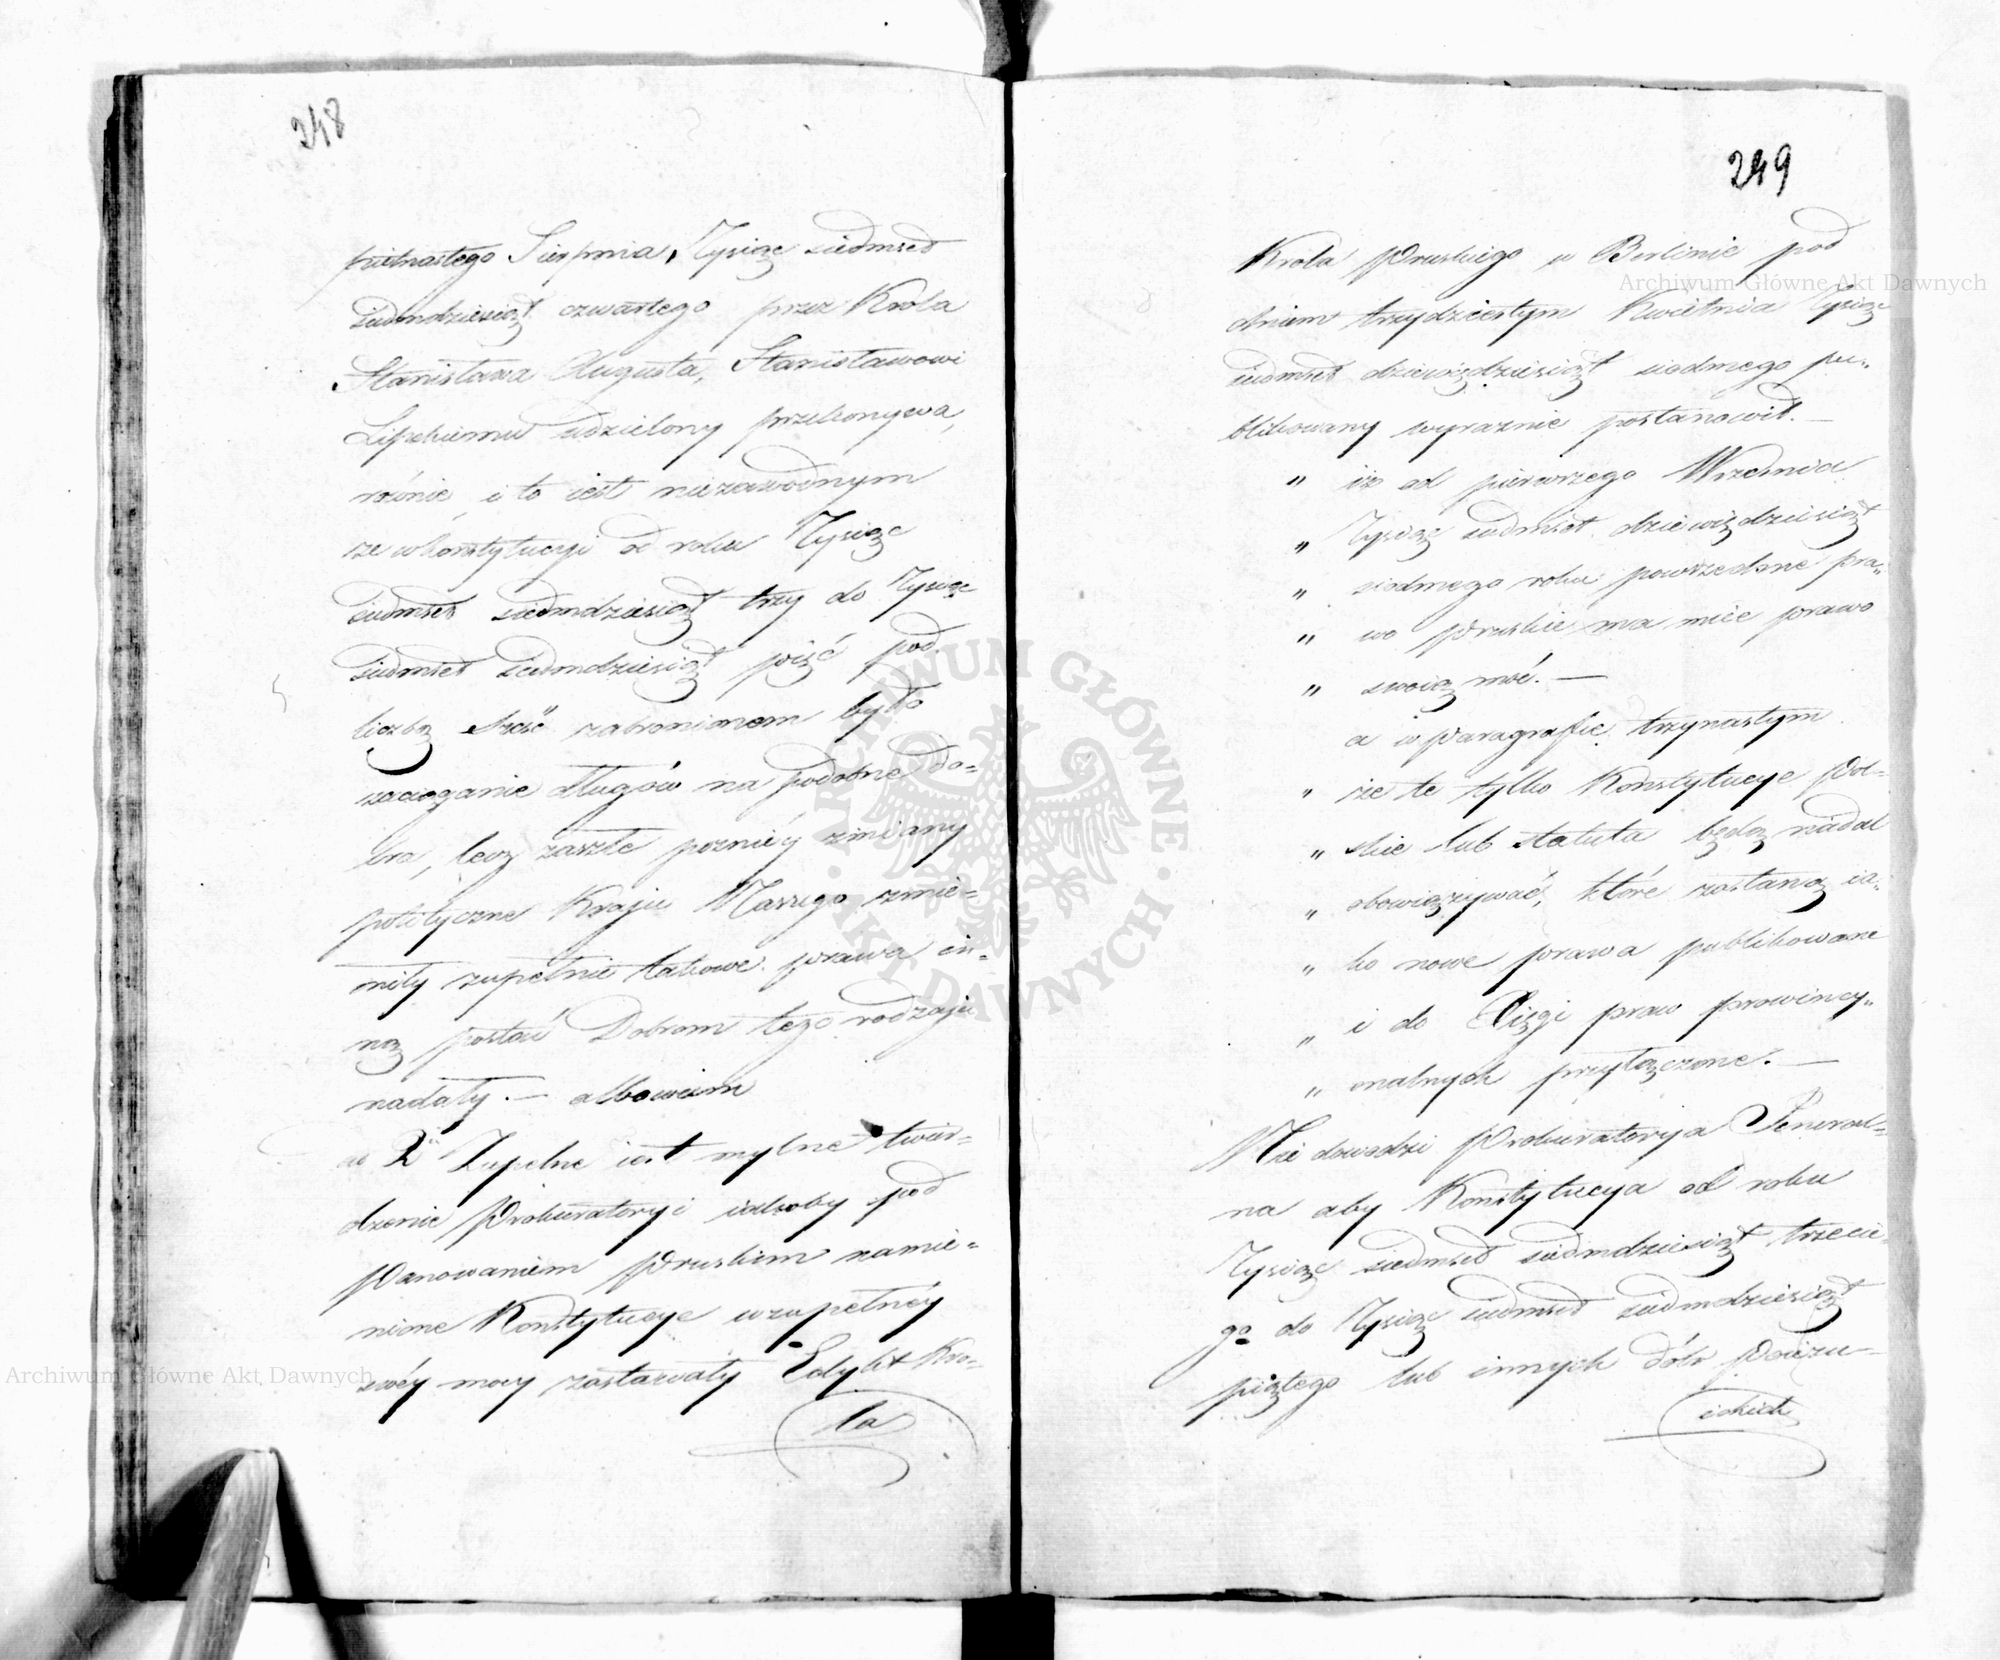 248
piętnastego Sierpnia, Tysiąc siedmset
siedmdziesiąt czwartego przez Krola
Stanisława Augusta, Stanisławowi
Lipskiemu udzielony przekonywa,
rownie i to iest niezawodnym
ze w konstytucyi od roku Tysiąc
siedmset siedmdziesiąt trzy do Tysiąc
siedmset siedmdziesiąt pięć pod
liczbą sześć zabronionem było
zaciąganie długów na podobne do=
bra, lecz zaszłe pozniéy zmiany
polityczne Kraju Naszego zmie=
niły zupełnie takowe prawa in=
ną postać Dobrom tego rodzaju
nadały. — albowiem
ad 2 Zupełne iest mylne twier=
dzenie Prokuratoryi iakoby pod
Panowaniem Pruskim namie=
nione Konstytucye w zupełnéy
swéy mocy zostawały Edykt Kro=
la
249
Krola Pruskiego w Berlinie pod
dniem trzydziestym Kwietnia Tysiąc
siedmset dziewięćdziesiąt siodmego pu=
blikowany wyraznie postanowił. —
„ iż od pierwszego Września
„ Tysiąc siedmset dziewięćdziesiąt
„ siodmego roku powszechne pra=
„ wo Pruskie ma mieć prawo
„ swoią moć. —
a w Paragrafie trzynastym
„ że te tylko Konstytucye Pol=
„ skie lub statuta będą nadal
„ obowiązywać, które zostaną ia=
„ ko nowe prawa publikowane
„ i do Xięgi praw prowincy=
„ onalnych przyłączone. —
Nie dowodzi Prokuratorya Jeneral=
na aby Konstytucya od roku
Tysiąc siedmset siedmdziesiąt trzecie=
go do Tysiąc siedmset siedmdziesiąt
piątego lub innych dóbr Poiezu=
ickich